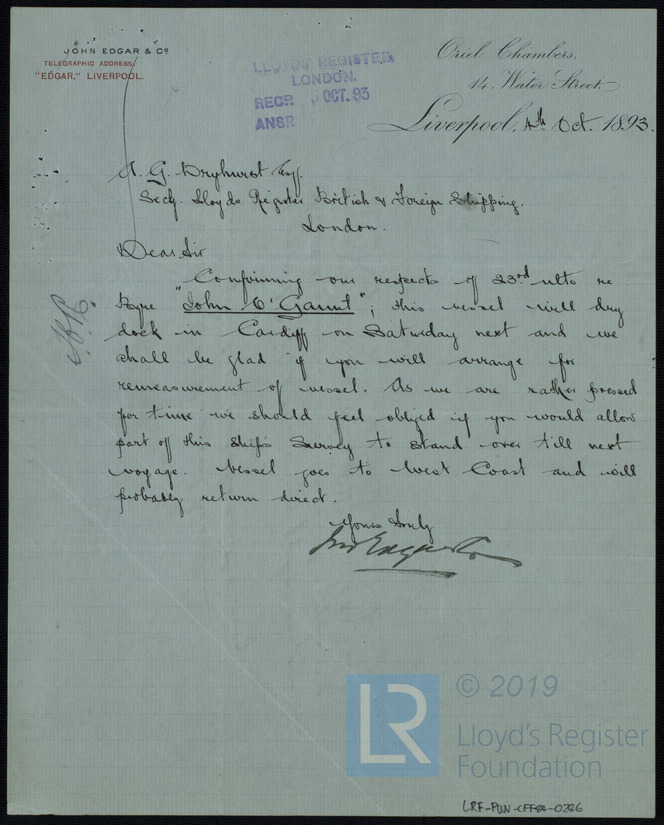 JOHN EDGAR & Co
TELEGRAPHIC ADDRESS,
"EDGAR," LIVERPOOL.
LLOYD'S REGISTER
LONDON.
RECD 5 OCT. 93
ANSR
Oriel Chambers,
14, Water Street.
Liverpool, 4th Oct. 1893.
A. G. Dryhurst Esq.
Secy. Lloyds Register British & Foreign Shipping.
London.
Dear Sir
Confirming our respects of 23rd ulto re
Bqe "John O'Gaunt"; this vessel will dry
dock in Cardiff on Saturday next and we
shall be glad if you will arrange for
remeasurement of vessel. As we are rather pressed
for time we should feel obliged if you would allow
part of this ships Survey to stand over till next
voyage. Vessel goes to West Coast and will
probably return direct.
Yours truly
Jno Edgar & Co
© 2019
LR
Lloyd's Register
Foundation
LRF-PUN-